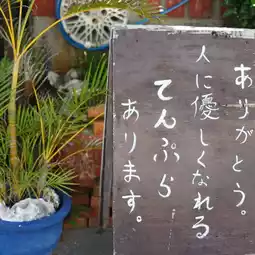 ありがとう。
人に優しくなれる
てんぷら
あります。